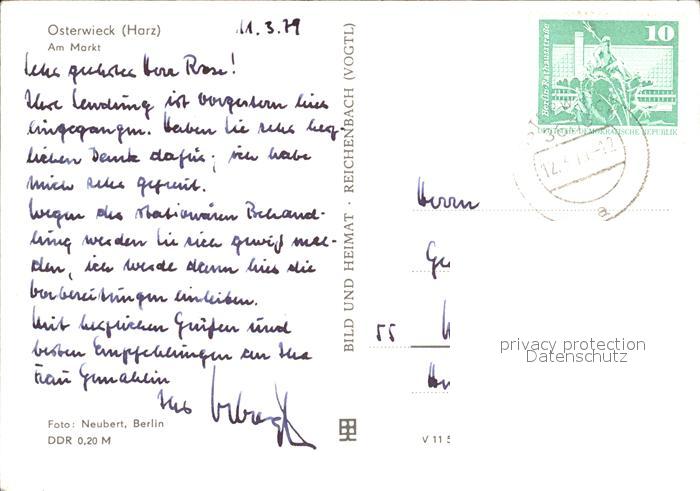 Osterwieck (Harz)
Am Markt
11.3.79
Sehr geehrter Herr Rose!
Ihre Sendung ist vorgestern hier
eingegangen. Haben Sie sehr herz-
lichen Dank dafür; ich habe
mich sehr gefreut.
Wegen der stationären Behand-
lung werden Sie sich gewiß mel-
den, ich werde dann hier die
Vorbereitungen einleiten.
Mit herzlichen Grüßen und
besten Empfehlungen an Ihre
Frau Gemahlin
Ihr
Foto: Neubert, Berlin
DDR 0,20 M
BILD UND HEIMAT · REICHENBACH (VOGTL)
10
Berlin-Rathausstraße
DEUTSCHE DEMOKRATISCHE REPUBLIK
a
Herrn
55
V 11 5
privacy protection
Datenschutz